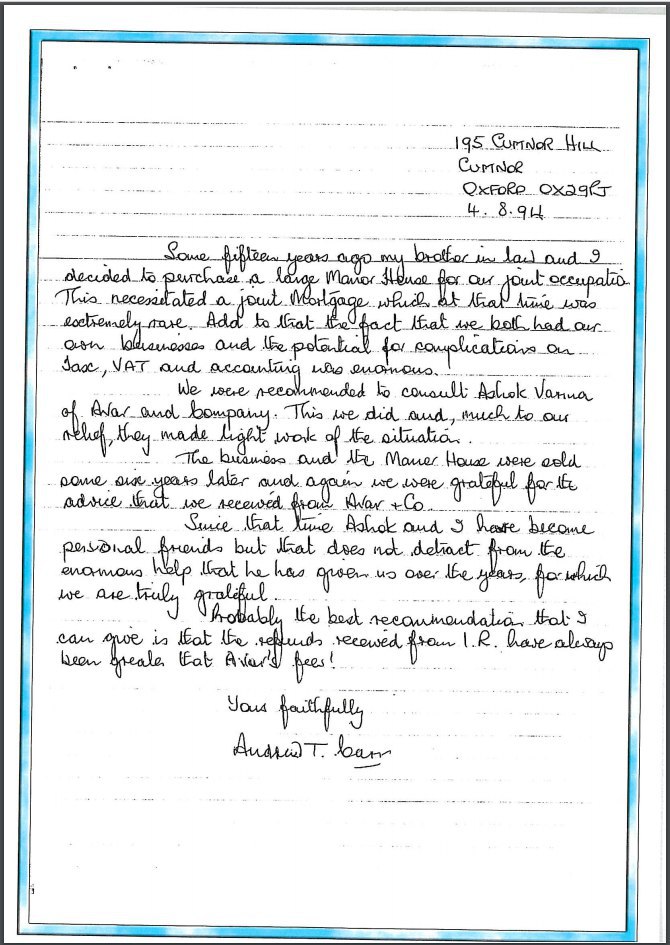 195 CUMNOR HILL
CUMNOR
OXFORD OX29PJ
4. 8. 94
Some fifteen years ago my brother in law and I
decided to purchase a large Manor House for our joint occupatio
This necessitated a joint Mortgage which at that time was
extremely rare. Add to that the fact that we both had our
own businesses and the potential for complications on
Tax, VAT and accounting was enormous.
We were recommended to consult Ashok Varma
of Avar and Company. This we did and, much to our
relief, they made light work of the situation.
The business and the Manor House were sold
some six years later and again we were grateful for the
advice that we received from Avar + Co.
Since that time Ashok and I have become
personal friends but that does not detract from the
enormous help that he has given us over the years, for which
we are truly grateful.
Probably the best recommendation that I
can give is that the refunds received from I.R. have always
been greater that Avar's fees!
Yours faithfully
Andrew T. Carr